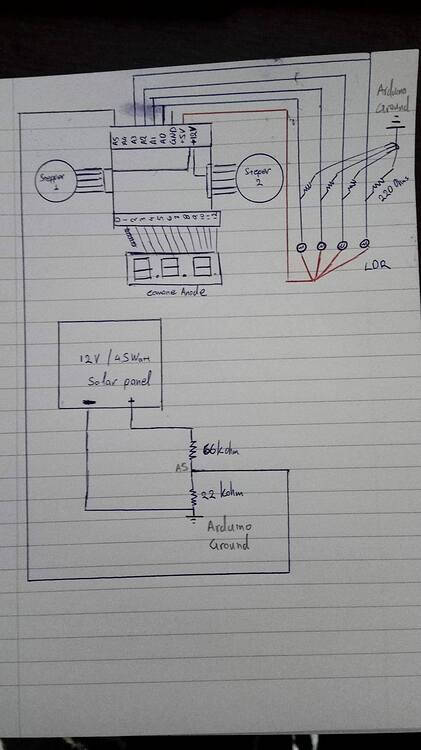 Arduino
Ground
A5
A4
A3
A2
A1
A0
GND
+5V
+12V
Stepper
1
Stepper
2
220 Ohms
0 1 2 3 4 5 6 7 8 9 10 11 12
8.8.8.
comone Anode
LDR
12V / 45Watt
Solar panel
- +
66kohm
A5
22 Kohm
Arduino
Ground